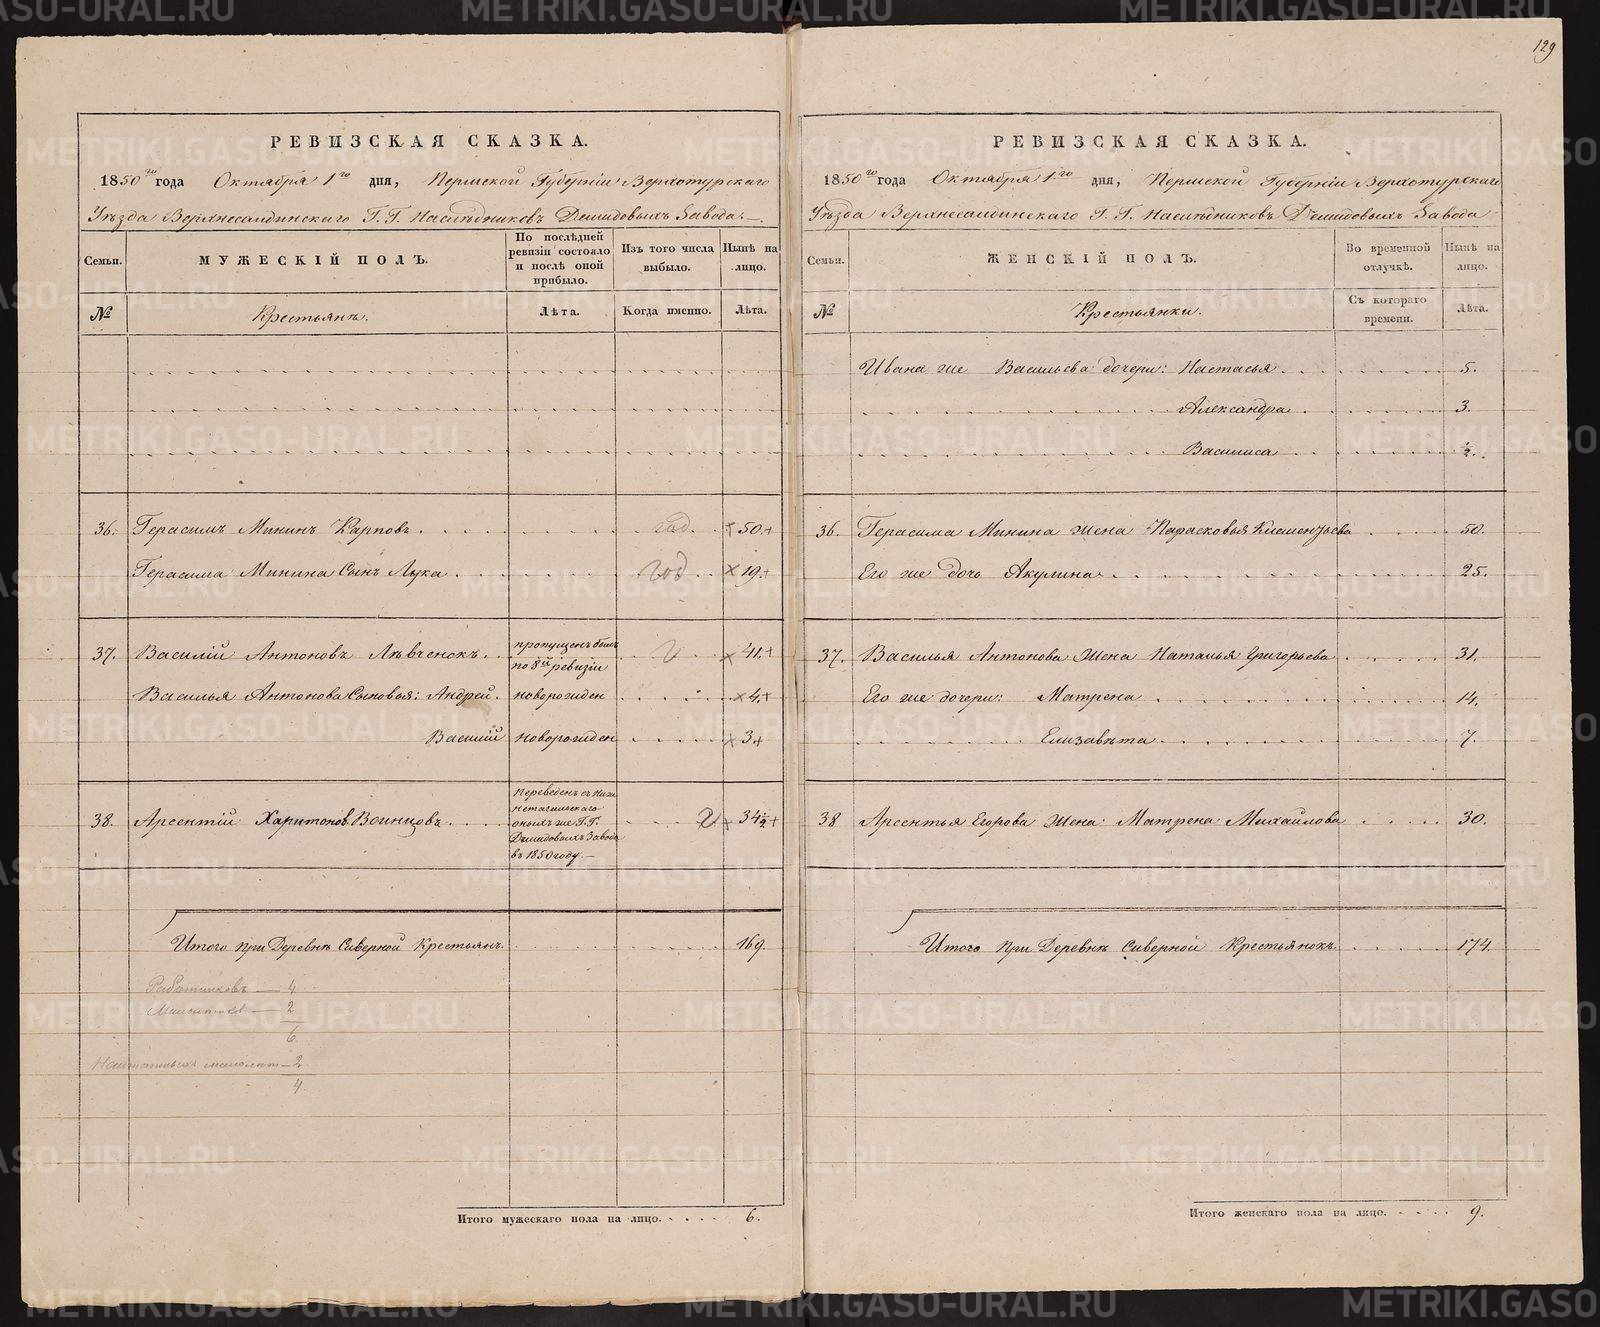 129
РЕВИЗСКАЯ СКАЗКА.
1850го года Октября 1го дня, Пермской Губерніи Верхотурскаго
Уѣзда Верхнесалдинскаго Г.Г. Наслѣдниковъ Демидовыхъ Завода
Семьи.
МУЖЕСКІЙ ПОЛЪ.
По послѣдней ревизіи состояло и послѣ оной прибыло.
Изъ того числа выбыло.
Нынѣ на лицо.
№
Крестьянъ.
Лѣта.
Когда именно.
Лѣта.
36. Герасимъ Мининъ Карповъ год 50
Герасима Минина Сынъ Лука год 19
37. Василій Антоновъ Лѣвченокъ пропущенъ былъ по 8й ревизіи 41
Василья Антонова Сыновья: Андрей новорожден 4
Василій новорожден 3
38. Арсентій Харитонов Воинцовъ переведенъ съ Нижнетагильскаго оныхъ же Г.Г. Демидовыхъ Завода въ 1850 году 34 1/2
Итого при Деревнѣ Сиверной Крестьянъ 169.
Работниковъ — 4
2
6
2
4
Итого мужескаго пола на лицо. 6.
РЕВИЗСКАЯ СКАЗКА.
1850го года Октября 1го дня, Пермской Губерніи Верхотурскаго
Уѣзда Верхнесалдинскаго Г.Г. Наслѣдниковъ Демидовыхъ Завода
Семьи.
ЖЕНСКІЙ ПОЛЪ.
Во временной отлучкѣ.
Нынѣ на лицо.
№
Крестьянки.
Съ котораго времени.
Лѣта.
Ивана же Васильева дочери: Настасья 5.
Александра 3.
Василиса 1/2.
36. Герасима Минина жена Парасковья Клементьева 50.
Его же дочь Акулина 25.
37. Василья Антонова жена Наталья Григорьева 31.
Его же дочери: Матрена 14.
Елизавѣта 7.
38 Арсентья Егорова жена Матрена Михайлова 30.
Итого при Деревнѣ Сиверной Крестьянокъ 174.
Итого женскаго пола на лицо. 9.
METRIKI.GASO-URAL.RU